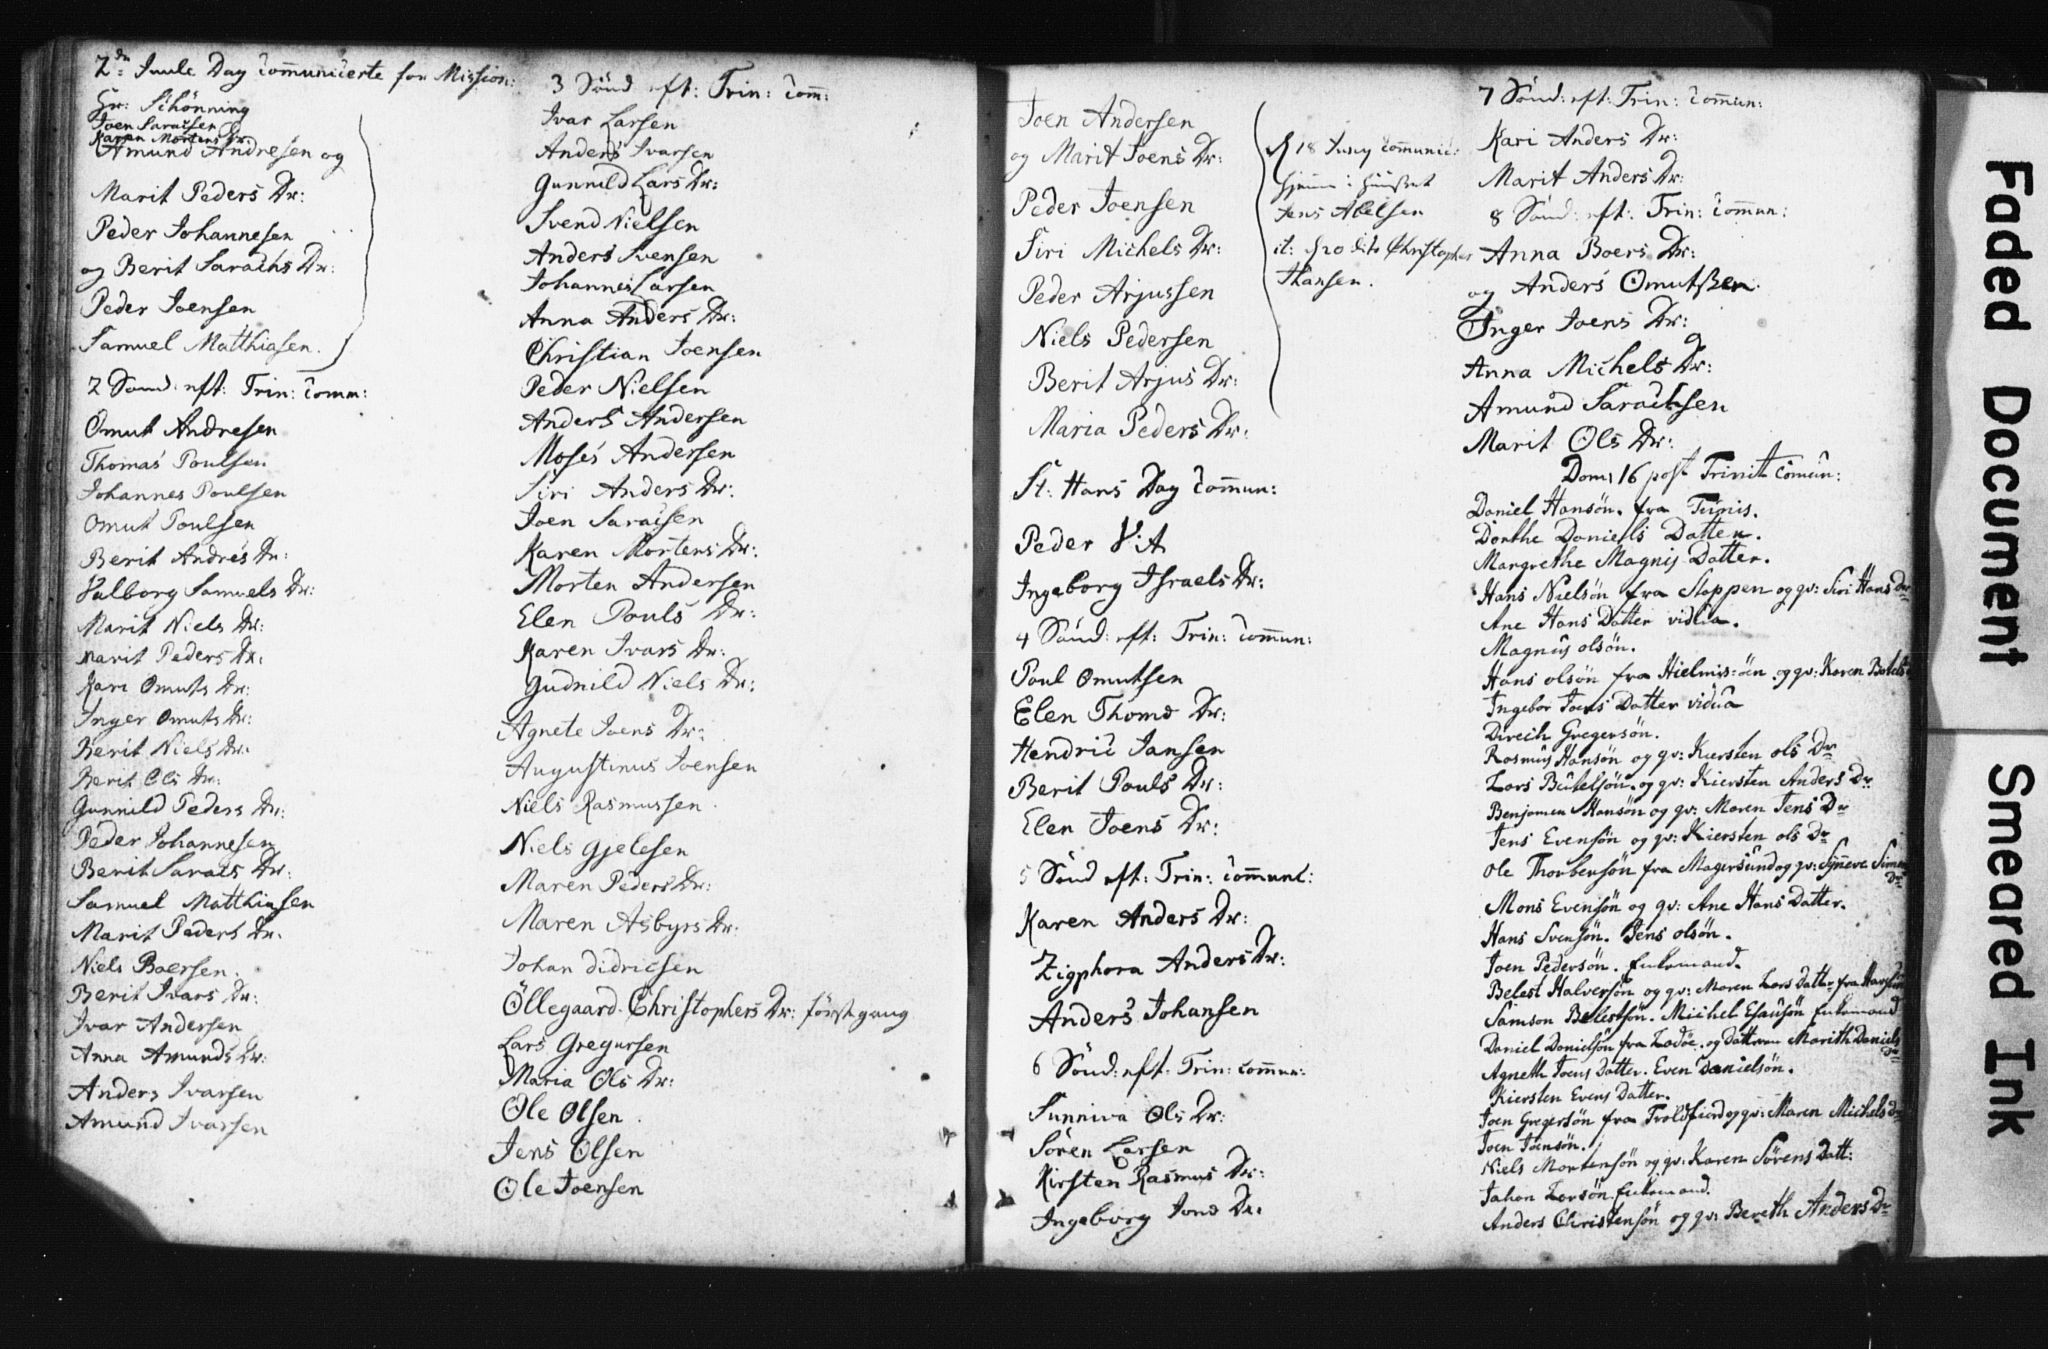 2den Juule Day Communicerte for Mission:
Hr: Schönning
Joen Saracsen
Karen Mortens Dr:
Amund Andresen og
Marit Peders Dr:
Peder Johannesen
og Berit Sarachs Dr:
Peder Joensen
Samuel Matthiasen.
2 Sönd: eft: Trin: Comm:
Omut Andresen
Thomas Poulsen
Johannes Poulsen
Omut Poulsen
Berit Andres Dr:
Valborg Samuels Dr:
Marit Niels Dr:
Marit Peders Dr:
Kari Omuts Dr:
Inger Omuts Dr:
Berit Niels Dr:
Berit Ols Dr:
Gunnild Peders Dr:
Peder Johannesen
Berit Saracs Dr:
Samuel Matthiasen
Marit Peders Dr:
Niels Boersen.
Berit Ivars Dr:
Ivar Andersen
Anna Amunds Dr:
Anders Ivarsen
Amund Ivarsen
3 Sönd eft: Trin: Comm:
Ivar Larsen
Anders Ivarsen
Gunnild Lars Dr:
Svend Nielsen
Anders Svensen
Johannes Larsen
Anna Anders Dr:
Christian Joensen
Peder Nielsen
Anders Andersen
Moses Andersen
Siri Anders Dr:
Joen Saracsen
Karen Mortens Dr:
Morten Andersen
Elen Pouls Dr:
Karen Ivars Dr:
Gudnild Niels Dr:
Agnete Joens Dr:
Augustinus Joensen
Niels Rasmussen.
Niels Gjelesen
Maren Peders Dr:
Maren Asbyrs Dr:
Johan Didricsen
Öllegaard Christophers Dr: förstgang
Lars Gregursen
Maria Ols Dr:
Ole Olsen.
Jens Olsen
Ole Joensen
Joen Andersen
og Marit Joens Dr:
Peder Joensen
Siri Michels Dr:
Peder Arjussen
Niels Pedersen
Berit Arjus Dr:
Maria Peders Dr:
18 Juny Communic:
hjemme i Huuset
Jens Abelsen
it: 20 dito Christopher
Hansen.
St: Hans Day Commun:
Peder V:A
Ingeborg Israels Dr:
4 Sönd: eft: Trin: Commun:
Poul Omutsen
Elen Thomæ Dr:
Hendric Jansen
Berit Pouls Dr:
Elen Joens Dr:
5 Sönd eft: Trin: Communi:
Karen Anders Dr:
Zigphora Anders Dr:
Anders Johansen
6 Sönd: eft: Trin: Commun:
Sunniva Ols Dr:
Sören Larsen
Kirsten Rasmus Dr:
Ingeborg Jonæ Dr:
7 Sönd: eft: Trin: Commun:
Kari Anders Dr:
Marit Anders Dr:
8 Sönd: eft: Trin: Commun:
Anna Boers Dr:
og Anders Omutsen.
Inger Joens Dr:
Anna Michels Dr:
Amund Saracksen
Marit Ols Dr:
Dom: 16 post Trinit: Comun:
Daniel Hansön. fra Tunis.
Dorthe Daniels Datter.
Margrethe Magnis Datter.
Hans Nielsön fra Stappen og qv: Siri Hans Dr
Ane Hans Datter vidua.
Magnus olsön.
Hans olsön fra Hielmis-öen og qv: Karen Botels
Ingebor Joens Datter vidua
Direich Gregersön.
Rasmus Hansön og qv: Kiersten ols Dr
Lars Botelsön. og qv: Kiersten Anders Dr
Benjamen Hansön og qv: Maren Jens Dr
Jens Evensön og qv: Kiersten ols Dr
Ole Thorbensön fra Magersund og qv: Synneve Simens Dr
Mons Evensön og qv: Ane Hans Datter.
Hans Svensön. Jens olsön.
Joen Pedersön. Enkemand.
Belest Halversön og qv: Maren Lars Datter fra
Samson Belestsön. Michel Esausön Enkemand
Daniel Danielsön fra Ladöe. og datteren Marith Daniels Dr
Agneth Joens Datter. Even Danielsön.
Kiersten Evens Datter.
Joen Gregersön fra Troldfiord og qv: Maren Michels Dr
Joen Joensön.
Niels Mortensön og qv: Karen Sörens Datt:
Johan Larsön. Enkemand.
Anders Christensön og qv: Bereth Anders Dr
Faded Document
Smeared Ink